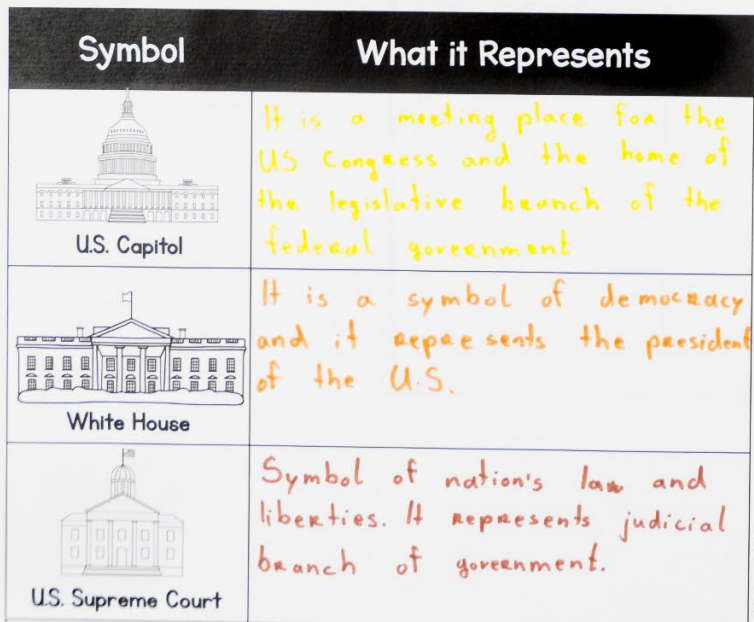 Symbol
What it Represents
U.S. Capitol
It is a meeting place for the
US Congress and the home of
the legislative branch of the
federal government
White House
It is a symbol of democracy
and it represents the president
of the U.S.
U.S. Supreme Court
Symbol of nation's law and
liberties. It represents judicial
branch of government.